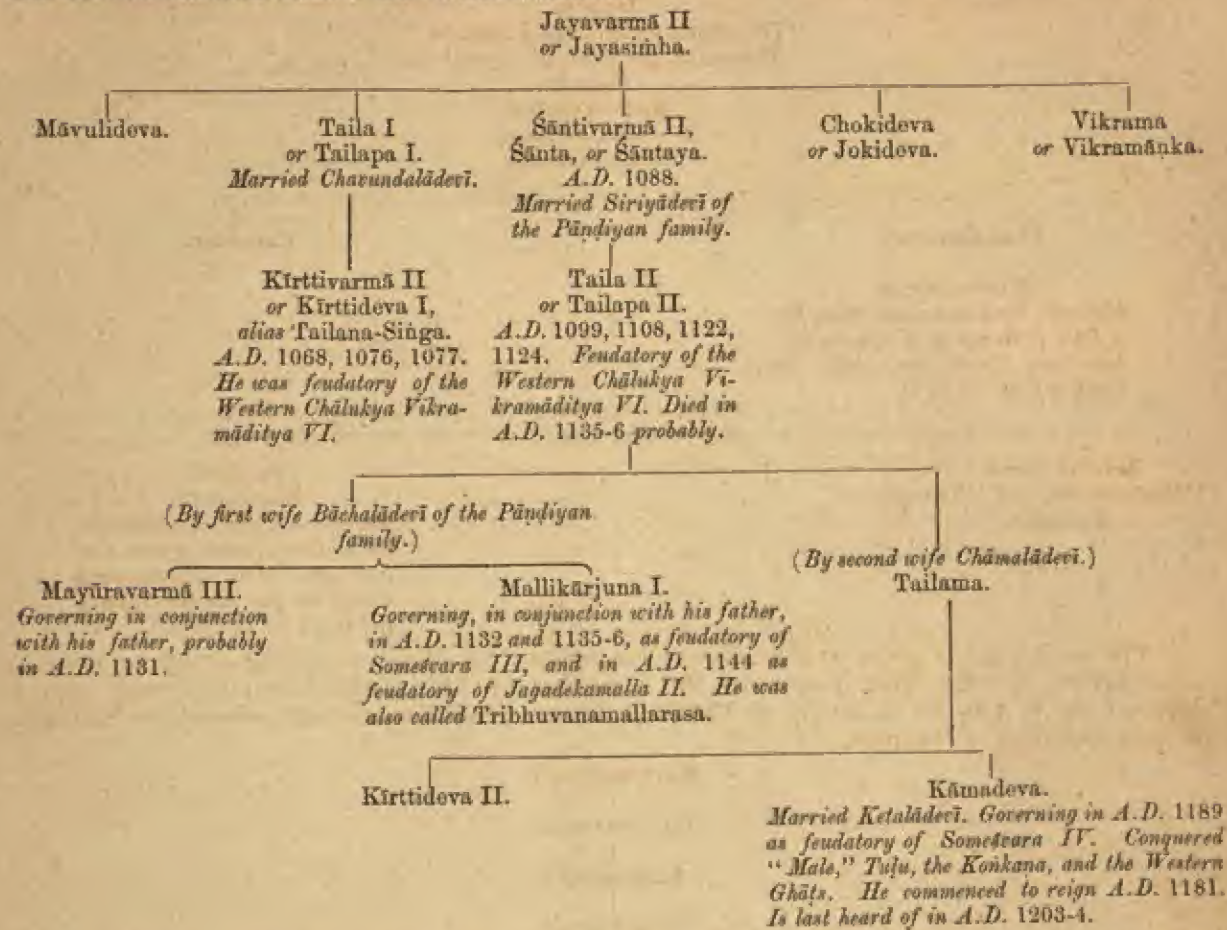 Jayavarmā II
or Jayasiṁha.
Māvulideva.
Taila I
or Tailapa I.
Married Chavundalādevī.
Śāntivarmā II,
Śānta, or Śāntaya.
A.D. 1088.
Married Siriyādevī of
the Pāṇḍiyan family.
Chokideva
or Jokideva.
Vikrama
or Vikramāṇka.
Kīrttivarmā II
or Kīrttideva I,
alias Tailana-Siṅga.
A.D. 1068, 1076, 1077.
He was feudatory of the
Western Chālukya Vikra-
māditya VI.
Taila II
or Tailapa II.
A.D. 1099, 1108, 1122,
1124. Feudatory of the
Western Chālukya Vi-
kramāditya VI. Died in
A.D. 1135-6 probably.
(By first wife Bāchalādevī of the Pāṇḍiyan
family.)
(By second wife Chāmalādevī.)
Tailama.
Mayūravarmā III.
Governing in conjunction
with his father, probably
in A.D. 1131.
Mallikārjuna I.
Governing, in conjunction with his father,
in A.D. 1132 and 1135-6, as feudatory of
Someśvara III, and in A.D. 1144 as
feudatory of Jagadekamalla II. He was
also called Tribhuvanamallarasa.
Kīrttideva II.
Kāmadeva.
Married Ketalādevī. Governing in A.D. 1189
as feudatory of Someśvara IV. Conquered
"Male," Tuḷu, the Koṅkana, and the Western
Ghāṭs. He commenced to reign A.D. 1181.
Is last heard of in A.D. 1203-4.